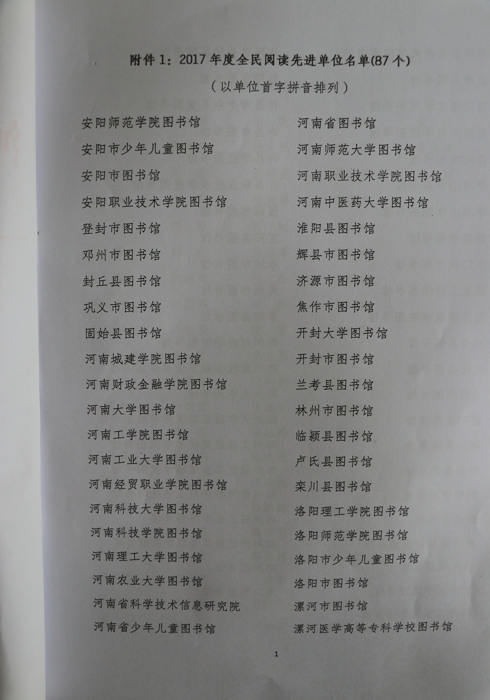 附件 1：2017 年度全民阅读先进单位名单(87 个)
（以单位首字拼音排列）
安阳师范学院图书馆
安阳市少年儿童图书馆
安阳市图书馆
安阳职业技术学院图书馆
登封市图书馆
邓州市图书馆
封丘县图书馆
巩义市图书馆
固始县图书馆
河南城建学院图书馆
河南财政金融学院图书馆
河南大学图书馆
河南工学院图书馆
河南工业大学图书馆
河南经贸职业学院图书馆
河南科技大学图书馆
河南科技学院图书馆
河南理工大学图书馆
河南农业大学图书馆
河南省科学技术信息研究院
河南省少年儿童图书馆
河南省图书馆
河南师范大学图书馆
河南职业技术学院图书馆
河南中医药大学图书馆
淮阳县图书馆
辉县市图书馆
济源市图书馆
焦作市图书馆
开封大学图书馆
开封市图书馆
兰考县图书馆
林州市图书馆
临颍县图书馆
卢氏县图书馆
栾川县图书馆
洛阳理工学院图书馆
洛阳师范学院图书馆
洛阳市少年儿童图书馆
洛阳市图书馆
漯河市图书馆
漯河医学高等专科学校图书馆
1